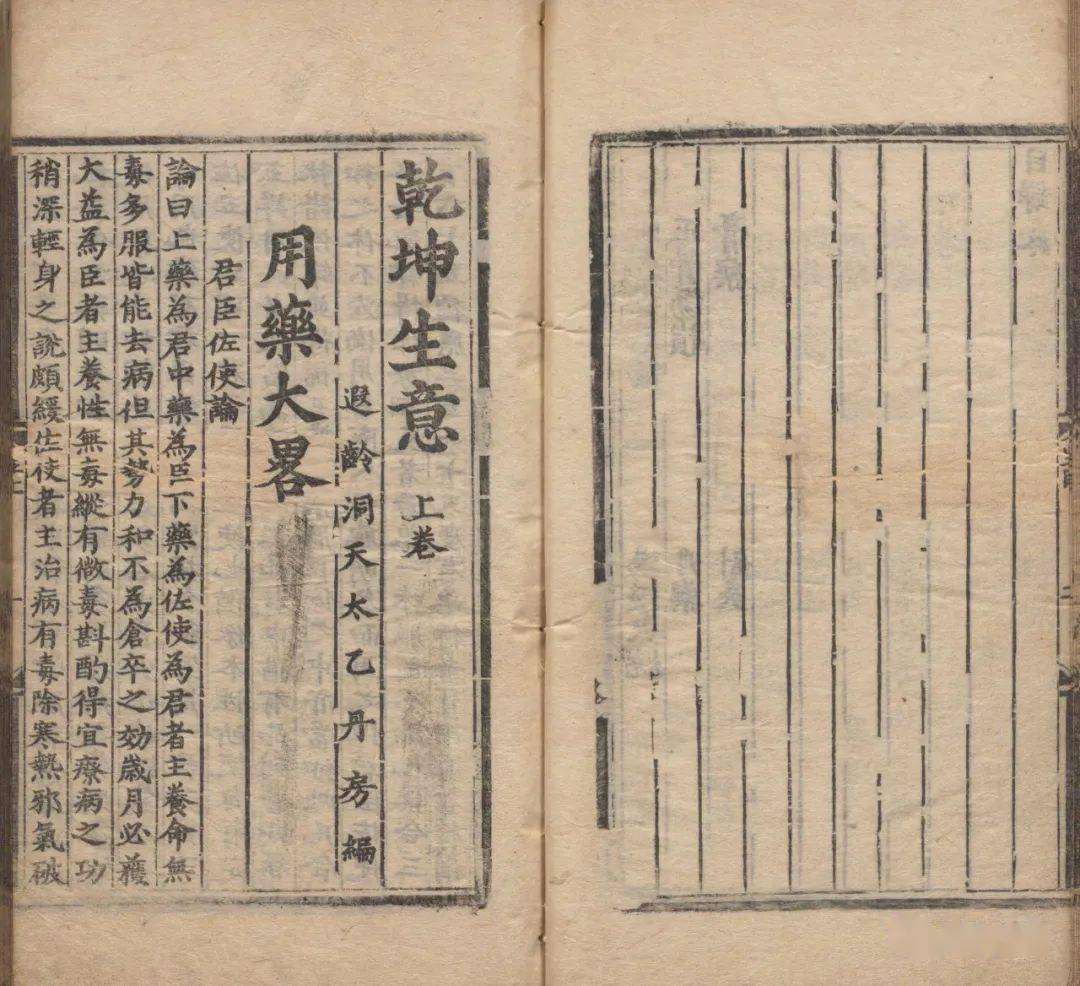 乾坤生意上卷
遐齡洞天太乙丹房編
用藥大畧
君臣佐使論
論曰上藥為君中藥為臣下藥為佐使為君者主養命無
毒多服皆能去病但其勢力和不為倉卒之効歲月必獲
大益為臣者主養性無毒縱有微毒斟酌得宜療病之功
稍深輕身之說頗緩佐使者主治病有毒除寒熱邪氣破